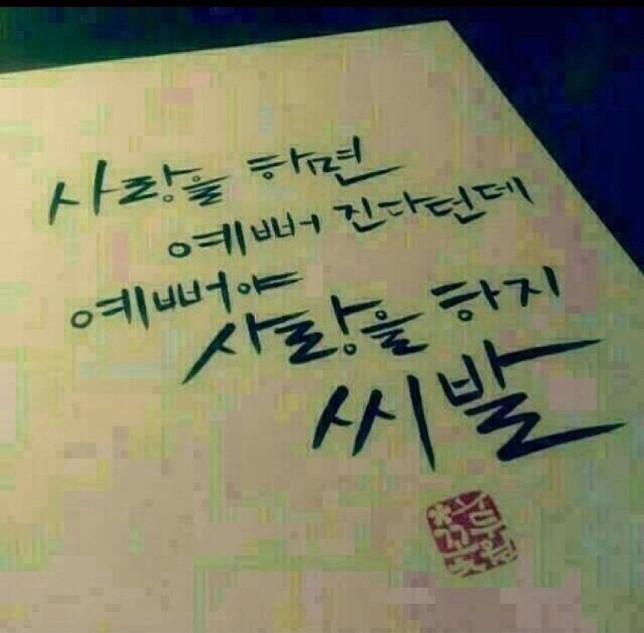 사랑을 하면
예뻐 진다던데
예뻐야
사랑을 하지
씨발